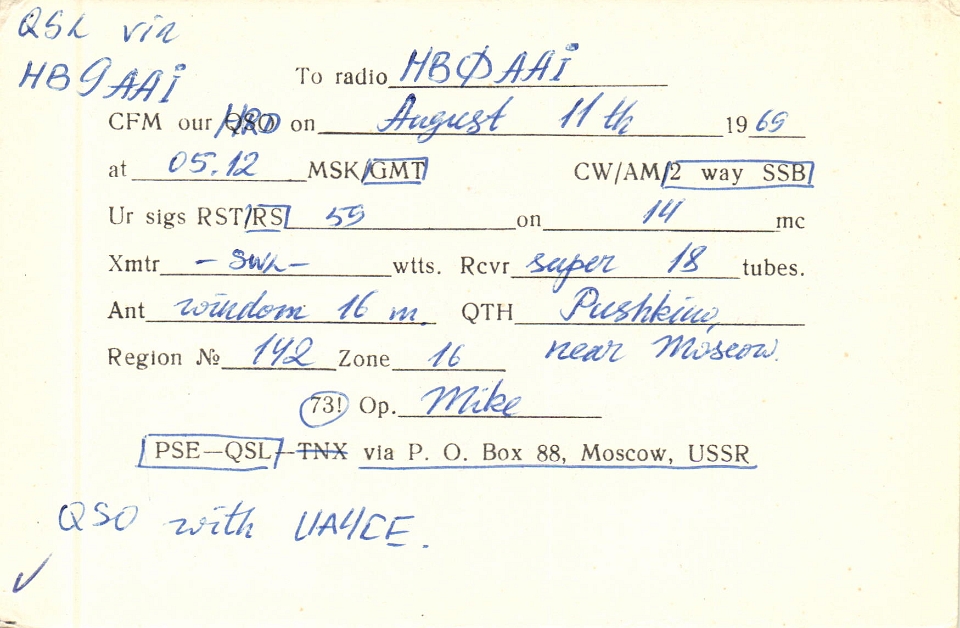 QSL via
HB9AAi
To radio HBØAAi
CFM our/HRD QSO on August 11th 1969
at 05.12 MSK/GMT CW/AM/2 way SSB
Ur sigs RST/RS 59 on 14 mc
Xmtr -SWL- wtts. Rcvr super 18 tubes.
Ant windom 16 m. QTH Pushkino,
Region № 142 Zone 16 near Moscow.
73! Op. Mike
PSE—QSL—TNX via P. O. Box 88, Moscow, USSR
QSO with UA4CE.